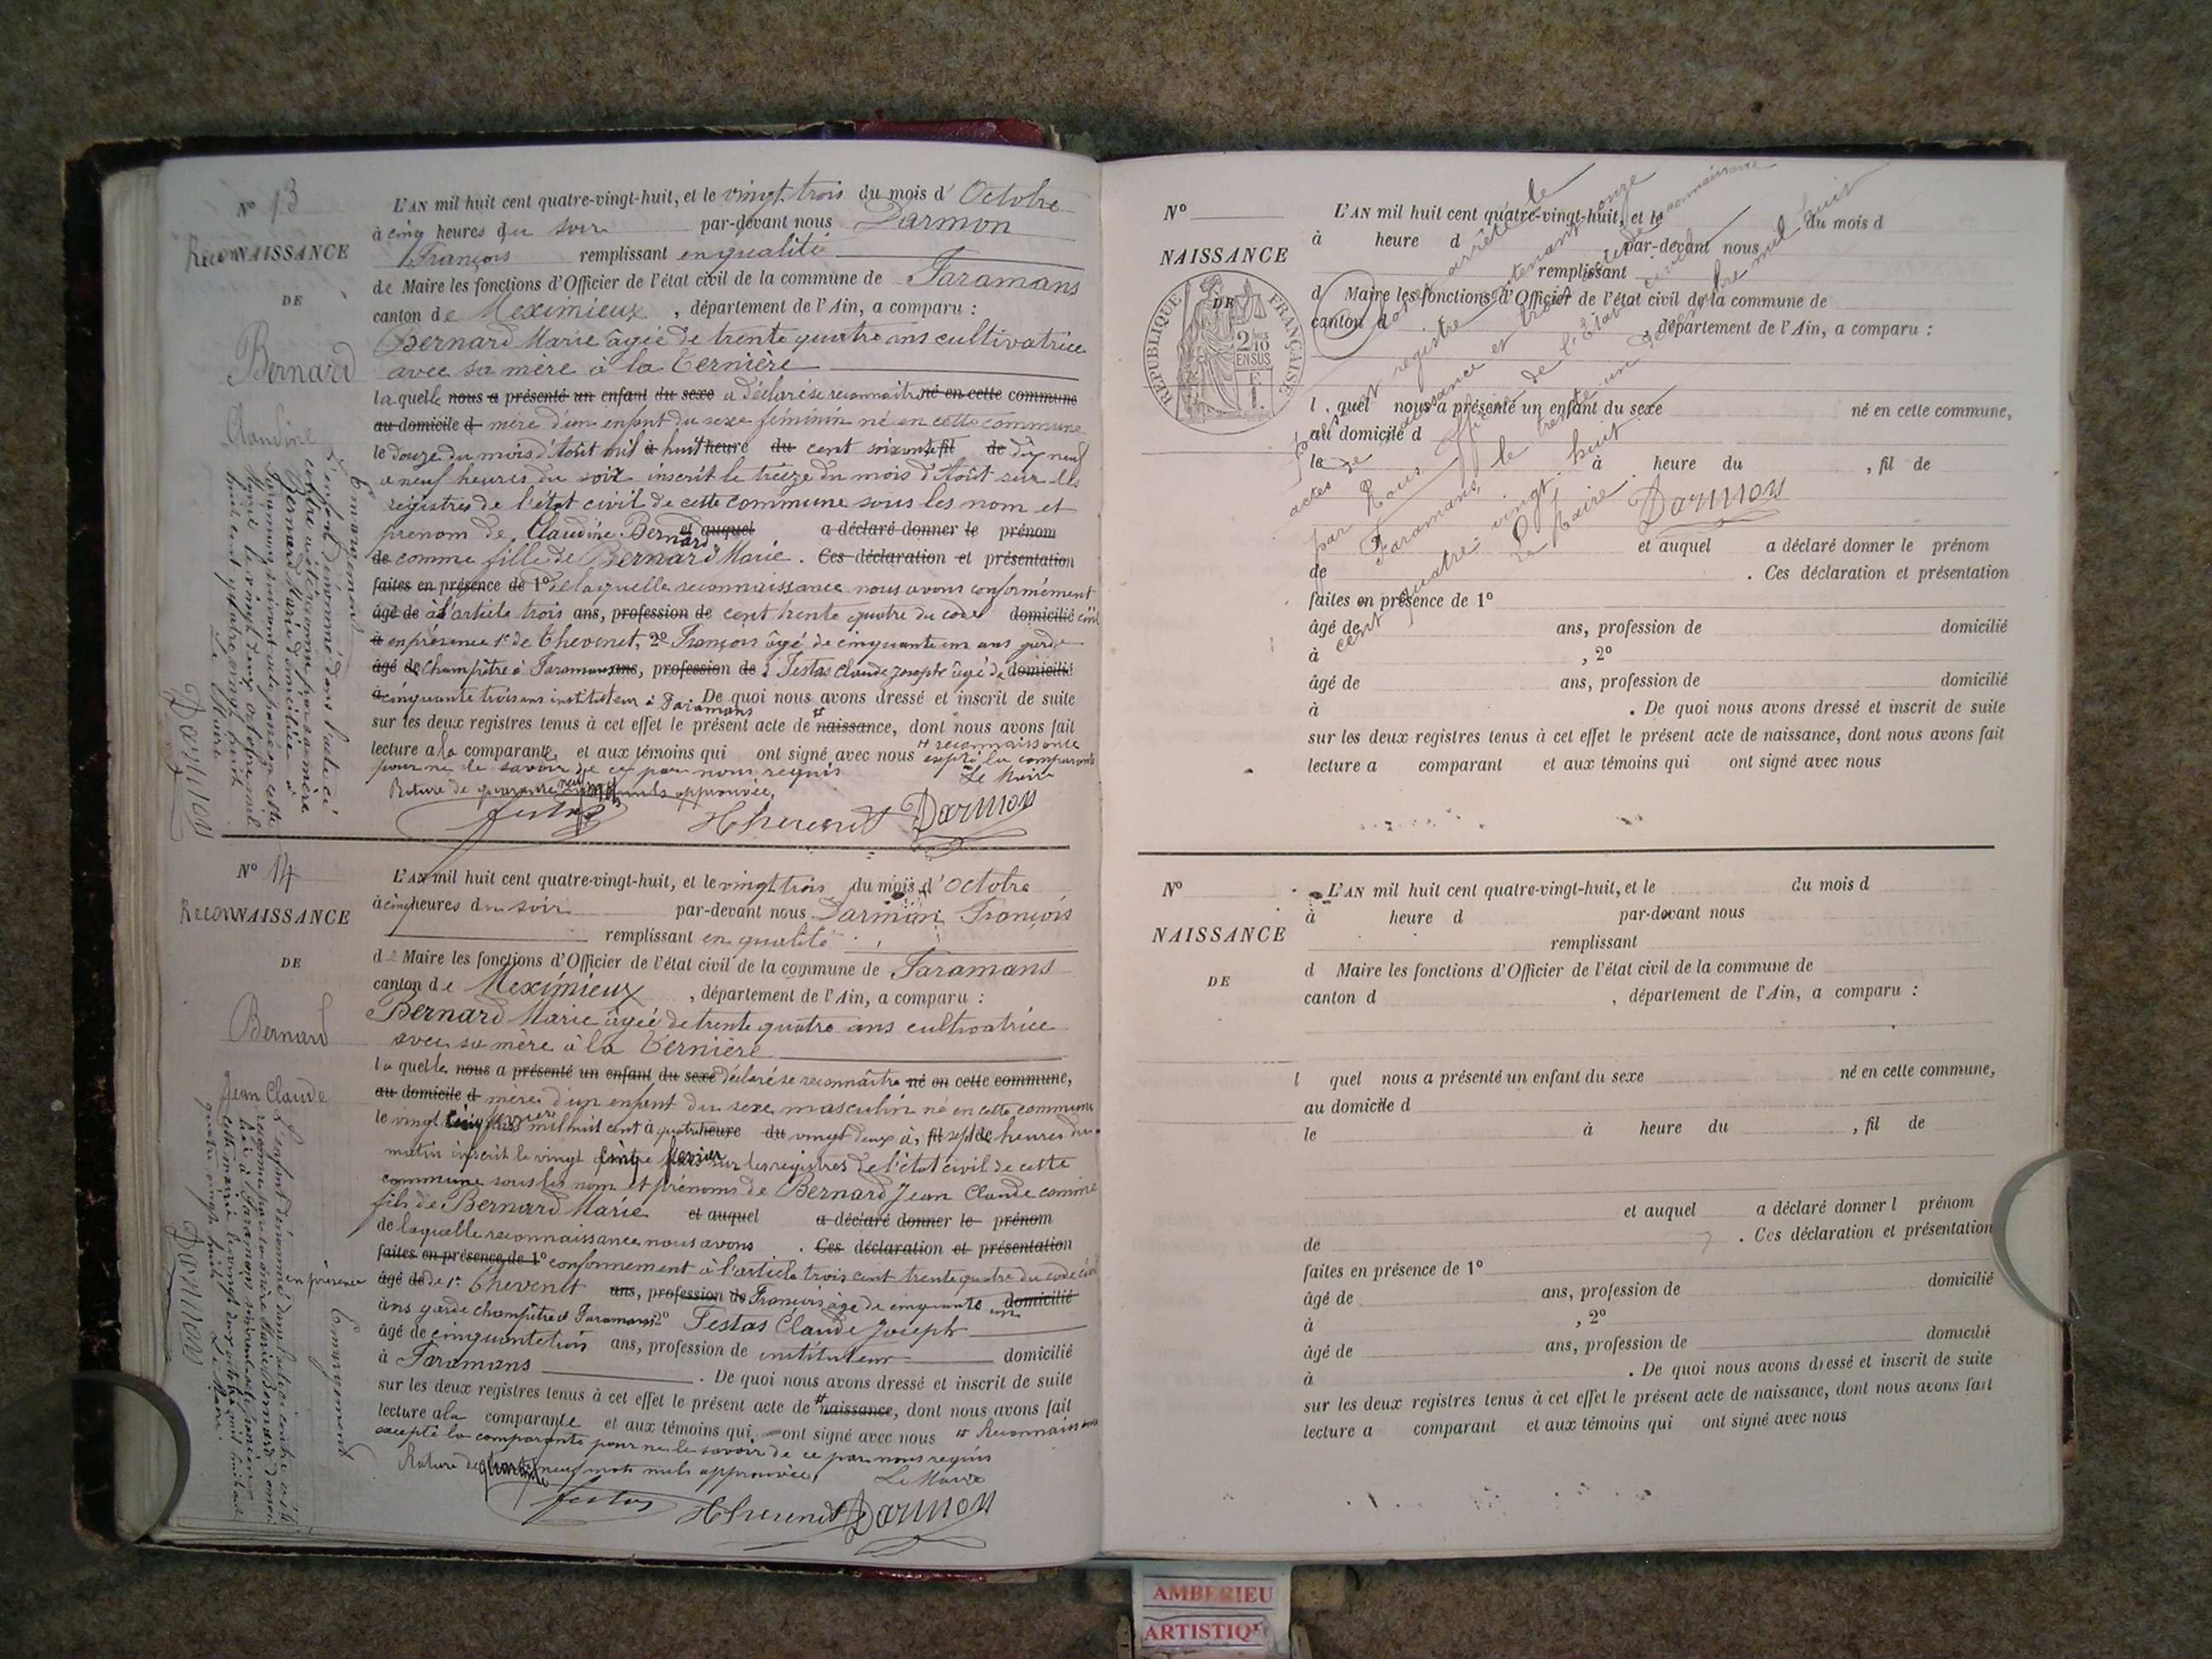 N° 13
RECONNAISSANCE
DE
Bernard
Claudine
L'AN mil huit cent quatre-vingt-huit, et le vingt trois du mois d'Octobre
à cinq heures du soir par-devant nous Darmon
François remplissant en qualité
de Maire les fonctions d'Officier de l'état civil de la commune de Faramans
canton de Meximieux, département de l'Ain, a comparu :
Bernard Marie âgée de trente quatre ans cultivatrice
avec sa mère à la Bernière
laquelle nous a présenté un enfant du sexe a déclaré se reconnaître né en cette commune
au domicile d mère d'un enfant du sexe féminin né en cette commune
le douze du mois d'Août mil à huit heure du cent soixante fil de dix neuf
a neuf heures du soir inscrit le treize du mois d'Août sur les
registres de l'état civil de cette commune sous les nom et
prénom de Claudine Bernard et auquel a déclaré donner le prénom
de comme fille de Bernard Marie. Ces déclaration et présentation
faites en présence de 1° de laquelle reconnaissance nous avons conformément
âgé de à l'article trois ans, profession de cent trente quatre du code domicilié civil
à en présence 1° de Thevenet, 2° François âgé de cinquante un ans garde
âgé de champêtre à Faramans ans, profession de 2 Festas Claude Joseph âgé de domicilié
à cinquante trois ans instituteur à Faramans De quoi nous avons dressé et inscrit de suite
sur les deux registres tenus à cet effet le présent acte de # naissance, dont nous avons fait
lecture a la comparante et aux témoins qui ont signé avec nous # reconnaissance
excepté la comparante
pour ne le savoir de ce par nous requis Le Maire
Rature de quarante neuf mots nuls approuvée,
Festas Thevenet Darmon
Emargement
L'enfant dénommé dans l'acte ci
contre a été reconnu par sa mère
Bernard Marie domiciliée à
Faramans suivant acte passé en cette
Mairie le vingt trois octobre mil
huit cent quatre vingt huit
Le Maire
Darmon
N° 14
RECONNAISSANCE
DE
Bernard
Jean Claude
L'AN mil huit cent quatre-vingt-huit, et le vingt trois du mois d'Octobre
à cinq heures du soir par-devant nous Darmon François
remplissant en qualité
de Maire les fonctions d'Officier de l'état civil de la commune de Faramans
canton de Meximieux, département de l'Ain, a comparu :
Bernard Marie âgée de trente quatre ans cultivatrice
avec sa mère à la Bernière
laquelle nous a présenté un enfant du sexe déclaré se reconnaître né en cette commune,
au domicile d mère d'un enfant du sexe masculin né en cette commune
le vingt cinq février mil huit cent à quatre heure du vingt deux à, fil sept de heures du
matin inscrit le vingt cinq février sur les registres de l'état civil de cette
commune sous les nom et prénoms de Bernard Jean Claude comme
fils de Bernard Marie et auquel a déclaré donner le prénom
de laquelle reconnaissance nous avons. Ces déclaration et présentation
faites en présence de 1° conformément à l'article trois cent trente quatre du code civil
en présence
âgé de de 1° Thevenet ans, profession de François âgé de cinquante un domicilié
ans garde champêtre à Faramans 2° Festas Claude Joseph
âgé de cinquante trois ans, profession de instituteur domicilié
à Faramans. De quoi nous avons dressé et inscrit de suite
sur les deux registres tenus à cet effet le présent acte de # naissance, dont nous avons fait
lecture a la comparante et aux témoins qui ont signé avec nous # Reconnaissance
excepté la comparante pour ne le savoir de ce par nous requis
Rature de quarante neuf mots nuls approuvée, Le Maire
Festas Thevenet Darmon
Emargement
L'enfant dénommé dans l'acte ci contre a été
reconnu par sa mère Marie Bernard
à Faramans suivant acte passé en
cette mairie le vingt trois octobre mil huit cent
quatre vingt huit Le Maire
Darmon
N°
NAISSANCE
DE
RÉPUBLIQUE FRANÇAISE
2/10 EN SUS
1 F.
L'AN mil huit cent quatre-vingt-huit, et le du mois d
à heure d par-devant nous
remplissant
d Maire les fonctions d'Officier de l'état civil de la commune de
canton d , département de l'Ain, a comparu :
l quel nous a présenté un enfant du sexe né en cette commune,
au domicile d
le à heure du , fil de
et auquel a déclaré donner le prénom
de . Ces déclaration et présentation
faites en présence de 1°
âgé de ans, profession de domicilié
à , 2°
âgé de ans, profession de domicilié
à . De quoi nous avons dressé et inscrit de suite
sur les deux registres tenus à cet effet le présent acte de naissance, dont nous avons fait
lecture a comparant et aux témoins qui ont signé avec nous
arrêté le
présent registre contenant onze
actes de naissance et trois actes de reconnaissance
par Nous Officier de l'Etat civil
Faramans, le trente un décembre mil huit
cent quatre vingt huit
Le Maire
Darmon
N°
NAISSANCE
DE
L'AN mil huit cent quatre-vingt-huit, et le du mois d
à heure d par-devant nous
remplissant
d Maire les fonctions d'Officier de l'état civil de la commune de
canton d , département de l'Ain, a comparu :
l quel nous a présenté un enfant du sexe né en cette commune,
au domicile d
le à heure du , fil de
et auquel a déclaré donner l prénom
de . Ces déclaration et présentation
faites en présence de 1°
âgé de ans, profession de domicilié
à , 2°
âgé de ans, profession de domicilié
à . De quoi nous avons dressé et inscrit de suite
sur les deux registres tenus à cet effet le présent acte de naissance, dont nous avons fait
lecture a comparant et aux témoins qui ont signé avec nous
AMBERIEU
ARTISTIQU